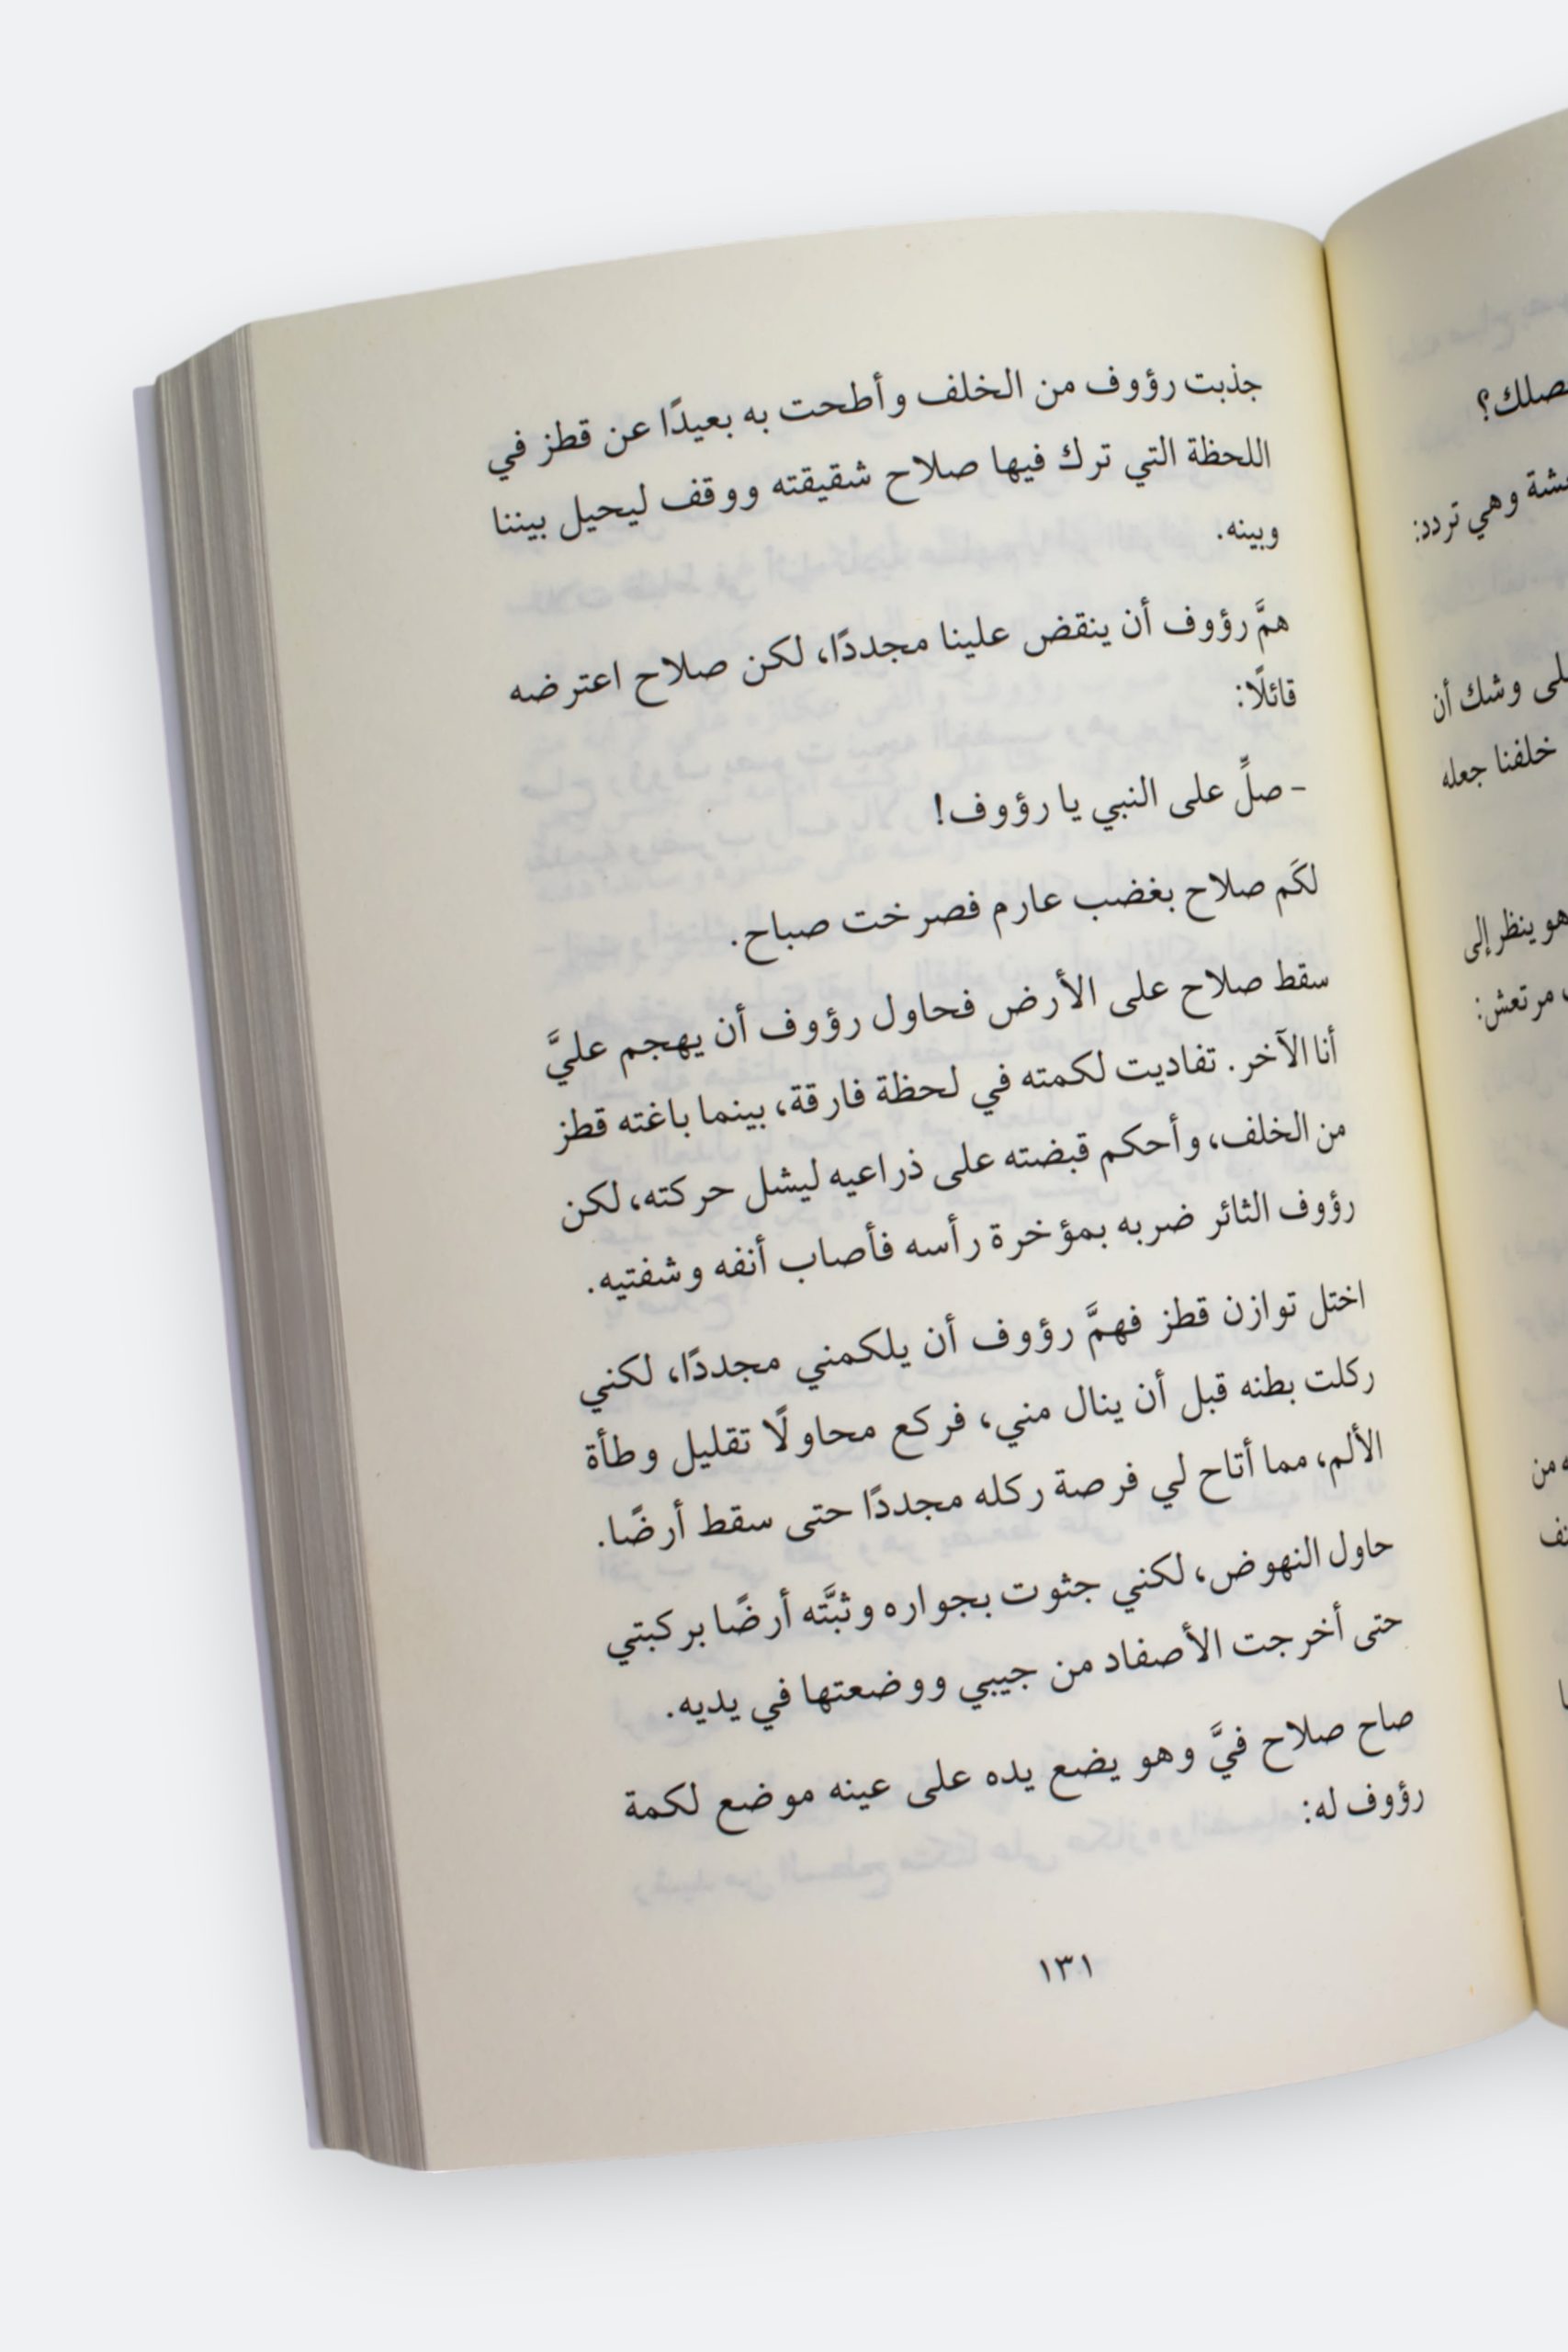 جذبت رؤوف من الخلف وأطحت به بعيدًا عن قطز في
اللحظة التي ترك فيها صلاح شقيقته ووقف ليحيل بيننا
وبينه.
همَّ رؤوف أن ينقض علينا مجددًا، لكن صلاح اعترضه
قائلًا:
- صلِّ على النبي يا رؤوف!
لكَم صلاح بغضب عارم فصرخت صباح.
سقط صلاح على الأرض فحاول رؤوف أن يهجم عليَّ
أنا الآخر. تفاديت لكمته في لحظة فارقة، بينما باغته قطز
من الخلف، وأحكم قبضته على ذراعيه ليشل حركته، لكن
رؤوف الثائر ضربه بمؤخرة رأسه فأصاب أنفه وشفتيه.
اختل توازن قطز فهمَّ رؤوف أن يلكمني مجددًا، لكني
ركلت بطنه قبل أن ينال مني، فركع محاولًا تقليل وطأة
الألم، مما أتاح لي فرصة ركله مجددًا حتى سقط أرضًا.
حاول النهوض، لكني جثوت بجواره وثبَّته أرضًا بركبتي
حتى أخرجت الأصفاد من جيبي ووضعتها في يديه.
صاح صلاح فيَّ وهو يضع يده على عينه موضع لكمة
رؤوف له:
١٣١
وهي تردد:
وشك أن
خلفنا جعله
هو ينظر إلى
مرتعش:
من